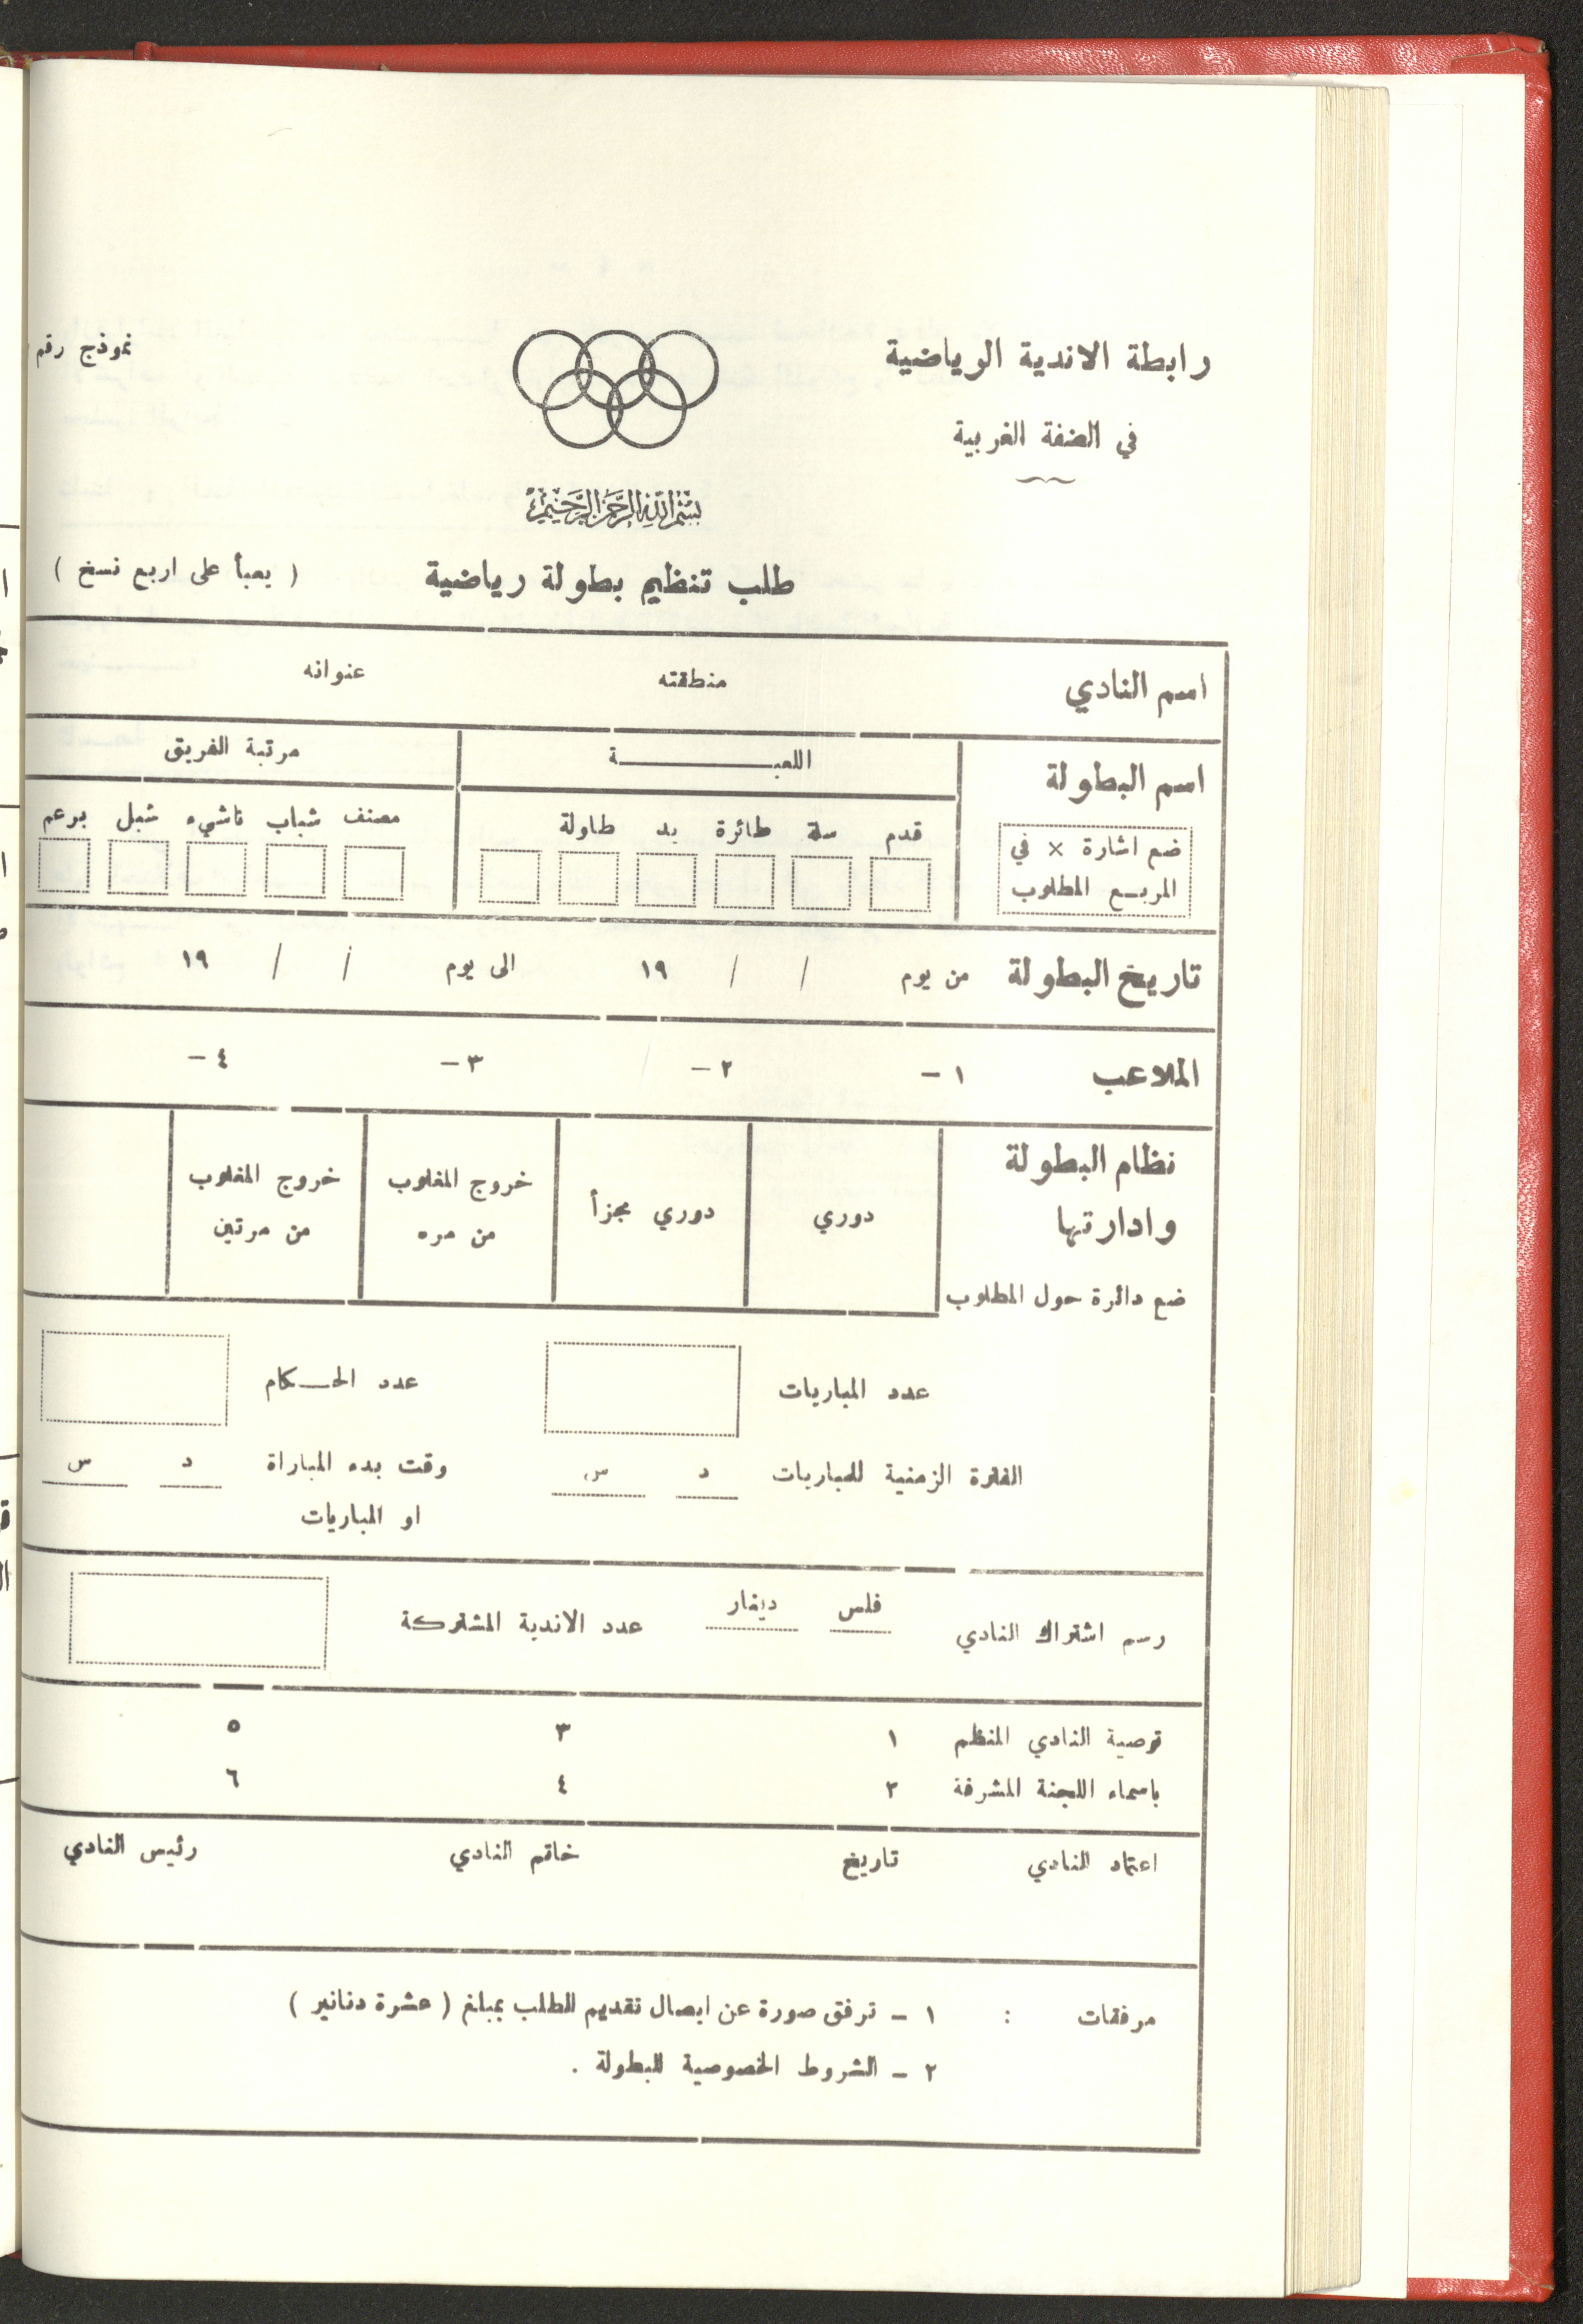 رابطة الاندية الرياضية
في الضفة الغربية
نموذج رقم
بسم الله الرحمن الرحيم
طلب تنظيم بطولة رياضية ( يعبأ على اربع نسخ )
اسم النادي منطقته عنوانه
اسم البطولة اللعبـــــــــة مرتبة الفريق
ضع اشارة × في
المربـع المطلوب
قدم سلة طائرة يد طاولة
مصنف شباب ناشيء شبل برعم
تاريخ البطولة من يوم / / ١٩ الى يوم / / ١٩
الملاعب ١ – ٢ – ٣ – ٤ –
نظام البطولة
وادارتها
ضع دائرة حول المطلوب
دوري
دوري مجزأ
خروج المغلوب
من مره
خروج المغلوب
من مرتين
عدد المباريات عدد الحـكام
الفترة الزمنية للمباريات د س وقت بدء المباراة د س
او المباريات
رسم اشتراك النادي فلس دينار عدد الاندية المشتركة
توصية النادي المنظم ١ ٣ ٥
باسماء اللجنة المشرفة ٢ ٤ ٦
اعتماد النادي تاريخ خاتم النادي رئيس النادي
مرفقات : ١ – ترفق صورة عن ايصال تقديم الطلب بمبلغ ( عشرة دنانير )
٢ – الشروط الخصوصية للبطولة .